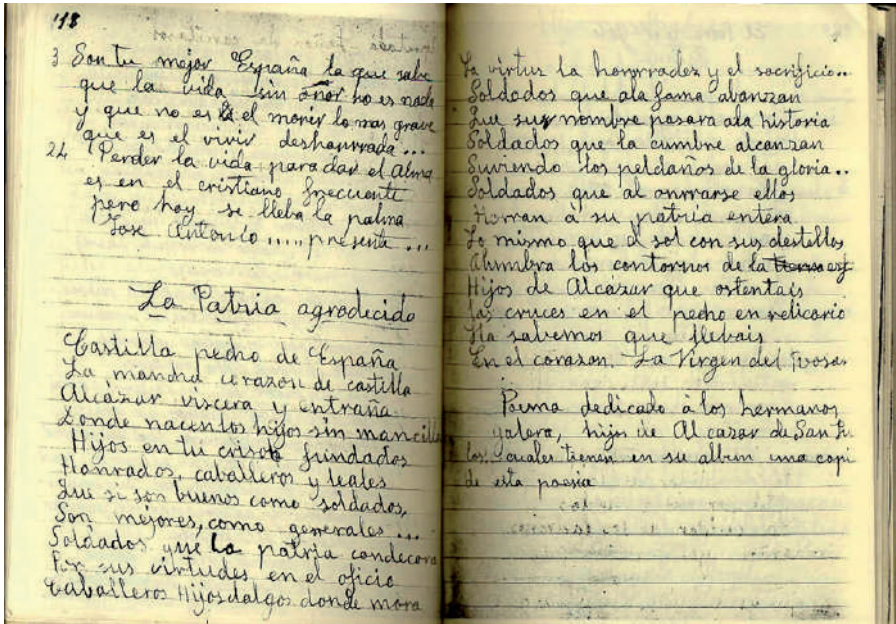 118
3 Son tu mejor España la que sabe
que la vida sin onor no es nada
y que no es el morir lo mas grave
que es el vivir deshonrrada...
24 Perder la vida para dar el Alma
es en el cristiano frecuente
pero hoy se lleba la palma
Jose Antonio..... presente...
La Patria agradecida
Castilla pecho de España
La mancha corazon de castilla
Alcázar viscera y entraña
Donde nacen los hijos sin mancilla
Hijos en tu crisol fundados
Honrados, caballeros y leales
Que si son buenos como soldados,
Son mejores, como generales...
Soldados que la patria condecora
Por sus virtudes en el oficio
Caballeros Hijosdalgos donde mora
La virtuz la honrradez y el sacrificio...
Soldados que ala fama abanzan
Que sus nombre pasara ala historia
Soldados que la cumbre alcanzan
Suviendo los peldaños de la gloria..
Soldados que al onrrarse ellos
Horran à su patria entera
Lo mismo que el sol con sus destellos
Alumbra los contornos de la
Hijos de Alcázar que ostentais
las cruces en el pecho en relicario
Ya sabemos que llebais
En el corazon. La Virgen del Rosa
Poema dedicado à los hermanos
galera, hijos de Alcazar de San Ju
los cuales tienen en su album una copi
de esta poesia